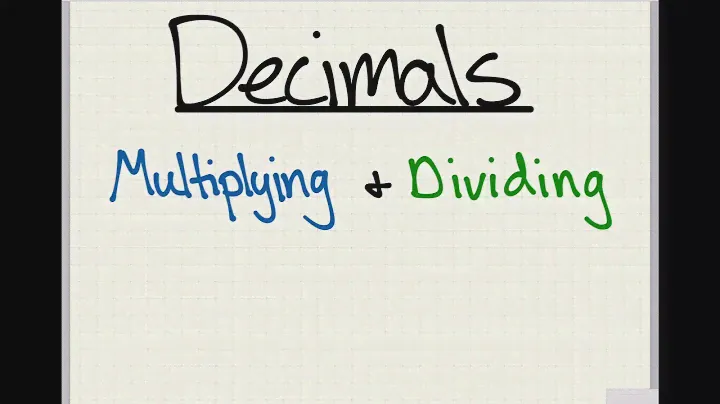 Decimals
Multiplying + Dividing